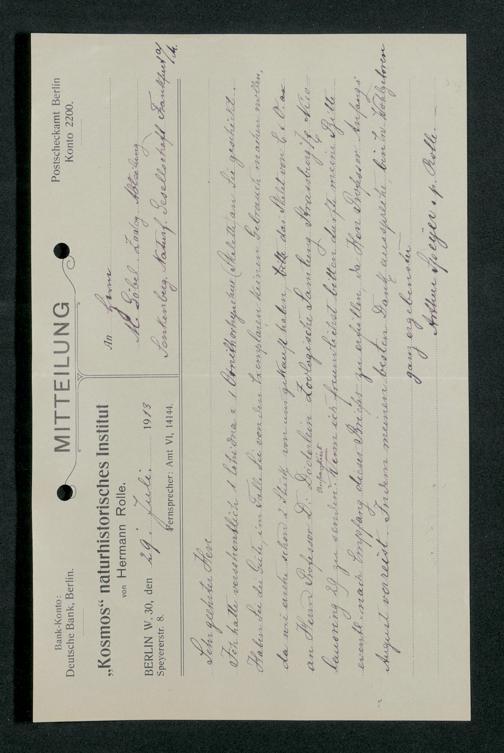 Bank-Konto:
Deutsche Bank, Berlin.
MITTEILUNG
Postscheckamt Berlin
Konto 2200.
„Kosmos“ naturhistorisches Institut
von Hermann Rolle.
BERLIN W. 30, den 29. Juli. 1913
Speyererstr. 8.
Fernsprecher: Amt VI, 14144.
An Herrn
M. Göbel. Zoolog Abteilung
Senkenberg. Naturf. Gesellschaft Frankfurt a/
M.
Sehr geehrter Herr
Ich hatte versehentlich 1 Echidna & 1 Ornithorhynchus (Skelett) an Sie geschickt.
Haben Sie die Güte, im Falle Sie von den Exemplaren keinen Gebrauch machen wollen,
da wie auch schon 2 Stück von uns gekauft haben, das Skelett von E. & O. an
an Herrn Professor Dr. Döderlein Zoologische Sammlung Strassburg i/E
zu senden. Wenn ich freundlichst bitten dürfte meine Bitte
eventl. nach Empfang dieses Briefes zu erfüllen, da Herr Professor Anfangs
August verreist. Indem meinen besten Dank ausspreche bin Ew Wohlgeboren
ganz ergebenster
Arthur Speyer i/ Rolle.